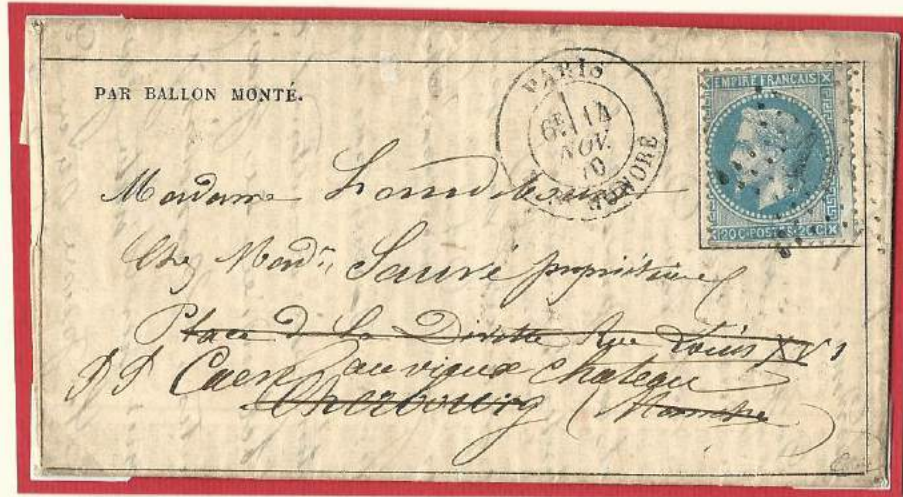 PAR BALLON MONTÉ.
PARIS
6E 14
NOV.
70
HONORÉ
EMPIRE FRANÇAIS
20 C · POSTES · 20 C
Madame
Chez Made. Sauvé propriétaire
Place de la Divette Rue Louis XVI
PP Caen au vieux chateau
Cherbourg (Manche)